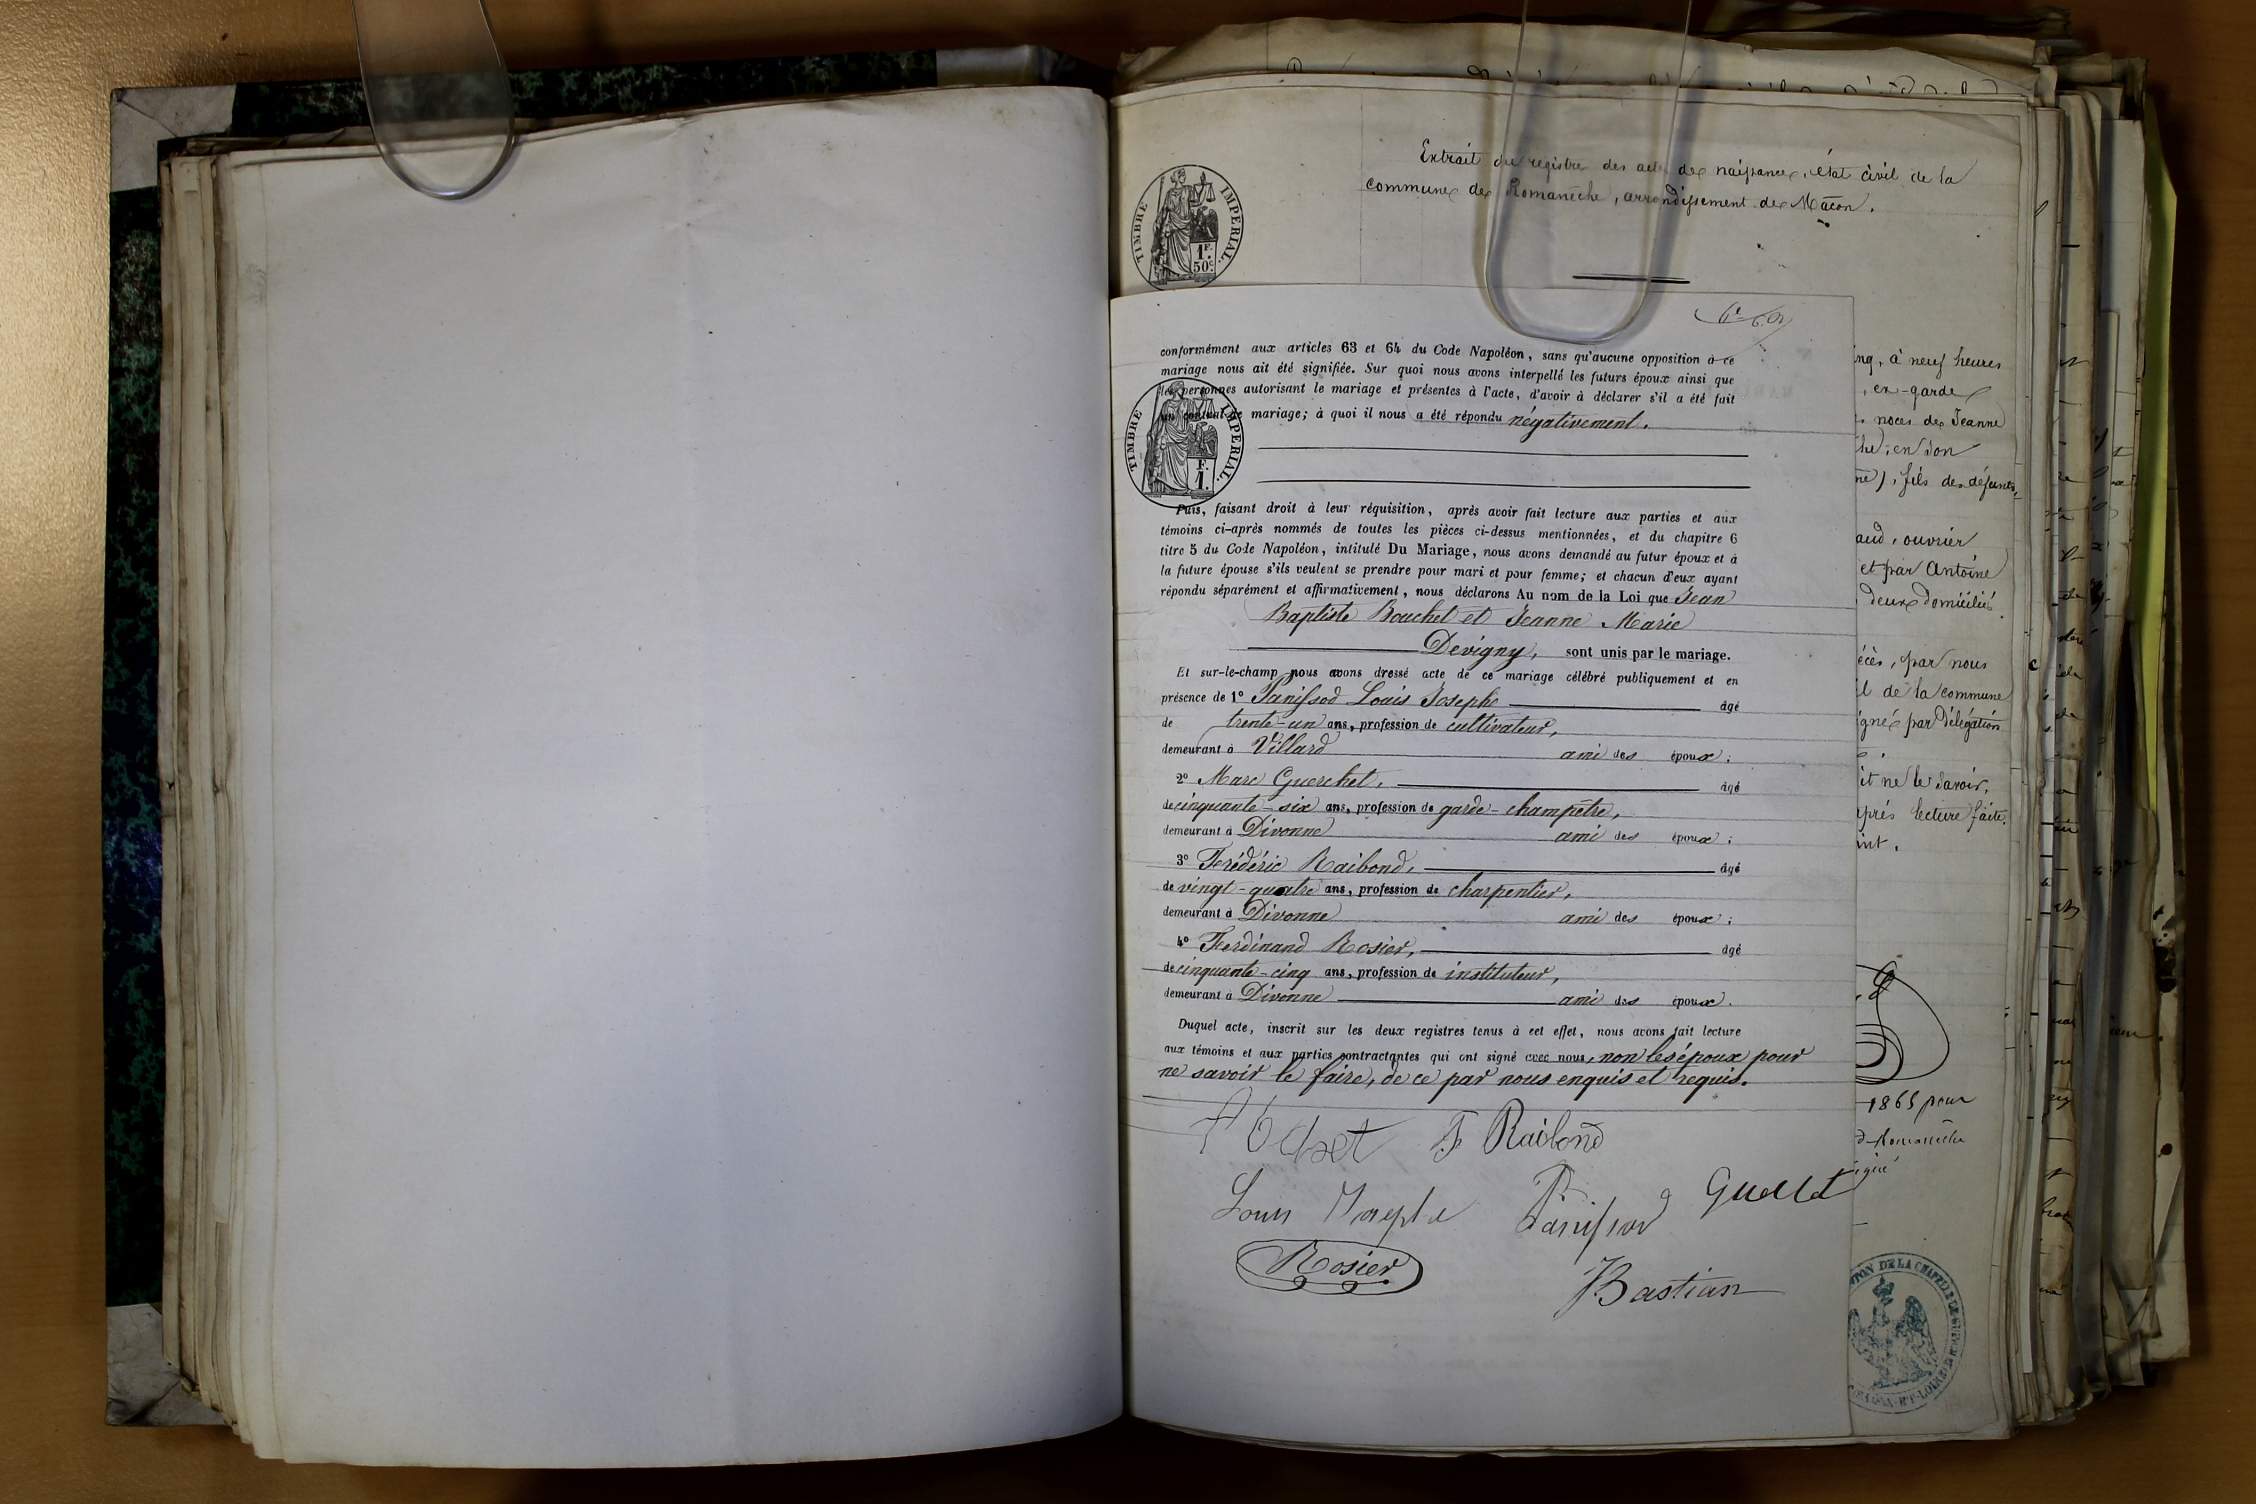 Extrait du registre des actes de naissance, état civil de la
commune de Romanèche, arrondissement de Mâcon.
TIMBRE IMPERIAL.
1F.
50c.
conformément aux articles 63 et 64 du Code Napoléon, sans qu'aucune opposition à ce
mariage nous ait été signifiée. Sur quoi nous avons interpellé les futurs époux ainsi que
les personnes autorisant le mariage et présentes à l'acte, d'avoir à déclarer s'il a été fait
un contrat de mariage; à quoi il nous a été répondu négativement.
TIMBRE IMPERIAL.
F.
1.
Puis, faisant droit à leur réquisition, après avoir fait lecture aux parties et aux
témoins ci-après nommés de toutes les pièces ci-dessus mentionnées, et du chapitre 6
titre 5 du Code Napoléon, intitulé Du Mariage, nous avons demandé au futur époux et à
la future épouse s'ils veulent se prendre pour mari et pour femme; et chacun d'eux ayant
répondu séparément et affirmativement, nous déclarons Au nom de la Loi que Jean
Baptiste Bouchet et Jeanne Marie
Devigny, sont unis par le mariage.
Et sur-le-champ nous avons dressé acte de ce mariage célébré publiquement et en
présence de 1° Panissod Louis Josephe âgé
de trente-un ans, profession de cultivateur,
demeurant à Villard ami des époux;
2° Marc Guerchet, âgé
de cinquante-six ans, profession de garde-champêtre,
demeurant à Divonne ami des époux;
3° Frédéric Raibond, âgé
de vingt-quatre ans, profession de charpentier,
demeurant à Divonne ami des époux;
4° Ferdinand Rosier, âgé
de cinquante-cinq ans, profession de instituteur,
demeurant à Divonne ami des époux.
Duquel acte, inscrit sur les deux registres tenus à cet effet, nous avons fait lecture
aux témoins et aux parties contractantes qui ont signé avec nous, non les époux pour
ne savoir le faire, de ce par nous enquis et requis.
F Raibond
Louis Josephe Panissod
Rosier
Bastian
inq, à neuf heures
, ex-garde
noces de Jeanne
en son
fils des défunts,
aud, ouvrier
et par Antoine
deux domiciliés
écès, par nous
il de la commune
igné par délégation
it ne le savoir,
près lecture faite.
1865 pour
NTON DE LA CHAPELLE-DE-GUINCHAY